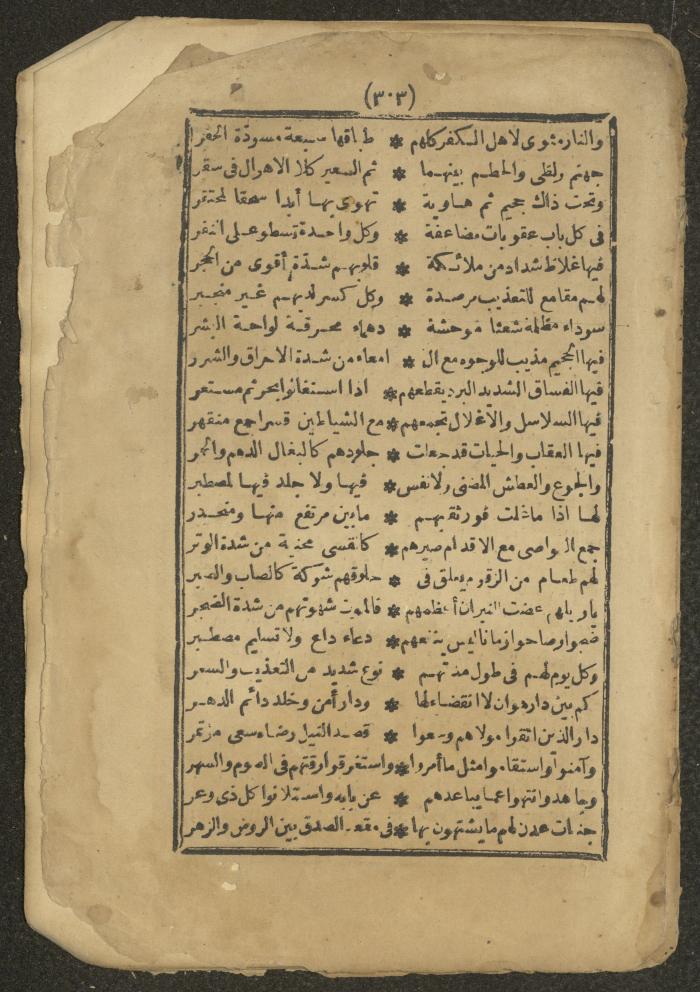 (٣٠٣)
والنار مثوى لاهل الكفر كلهم * طباقها سبعة مسودة الحفر
جهنم ولظى والحطم بينهما * ثم السعير كلا الاهوال فى سقر
وتحت ذاك جحيم ثم هاوية * تهوى بها أبدا سحقا لمحتقر
فى كل باب عقوبات مضاعفة * وكل واحدة تسطو على النفر
فيها غلاظ شداد من ملائكة * قلوبهم شدة أقوى من الحجر
لهم مقامع للتعذيب مرصدة * وكل كسر لديهم غير منجبر
سوداء مظلمة شعثا موحشة * دهماء محرقة لواحة البشر
فيها الجحيم مذيب للوجوه مع ال * امعاء من شدة الاحراق والشرر
فيها الغساق الشديد البرد يقطعهم * اذا استغاثوا بحر ثم مستعر
فيها السلاسل والاغلال تجمعهم * مع الشياطين قسرا جمع منقهر
فيها العقاب والحيات قد جعلت * جلودهم كالبغال الدهم والحمر
والجوع والعطش المضنى ولا نفس * فيها ولا جلد فيها لمصطبر
لها اذا ما غلت فور ثقيبهم * ما بين مرتفع منها ومنحدر
جمع النواصى مع الاقدام صيرهم * كالقسى محنية من شدة الوتر
لهم طعام من الزقوم يعلق فى * حلوقهم شوكة كالصاب والصبر
يا ويلهم عضت النيران أعظمهم * فالموت شهوتهم من شدة الضجر
ضجوا وصاحوا زمانا ليس ينفعهم * دعاء داع ولا تسليم مصطبر
وكل يوم لهم فى طول مدتهم * نوع شديد من التعذيب والسعر
كم بين دار هوان لا انقضاء لها * ودار أمن وخلد دائم الدهر
دار الذين اتقوا مولاهم وسعوا * قصدا لنيل رضاه سعى مؤتمر
وآمنوا واستقاموا مثل ما أمروا * واستغرقوا وقتهم فى الصوم والسهر
وجاهدوا وانتهوا عما يباعدهم * عن بابه واستلانوا كل ذى وعر
جنات عدن لهم ما يشتهون بها * فى مقعد الصدق بين الروض والزهر